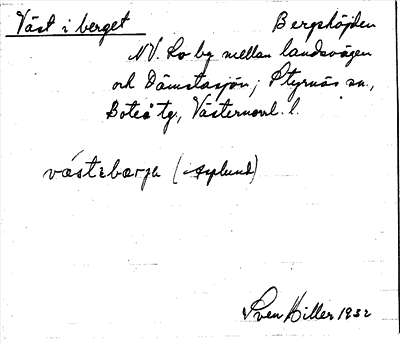 Väst i berget Bergshöjden
N.V. Lo by mellan landsvägen
och Dämstasjön; Styrnäs sn.,
Boteå tg., Västernorrl. l.
västibærja (Asplund)
Sven Hiller 1932